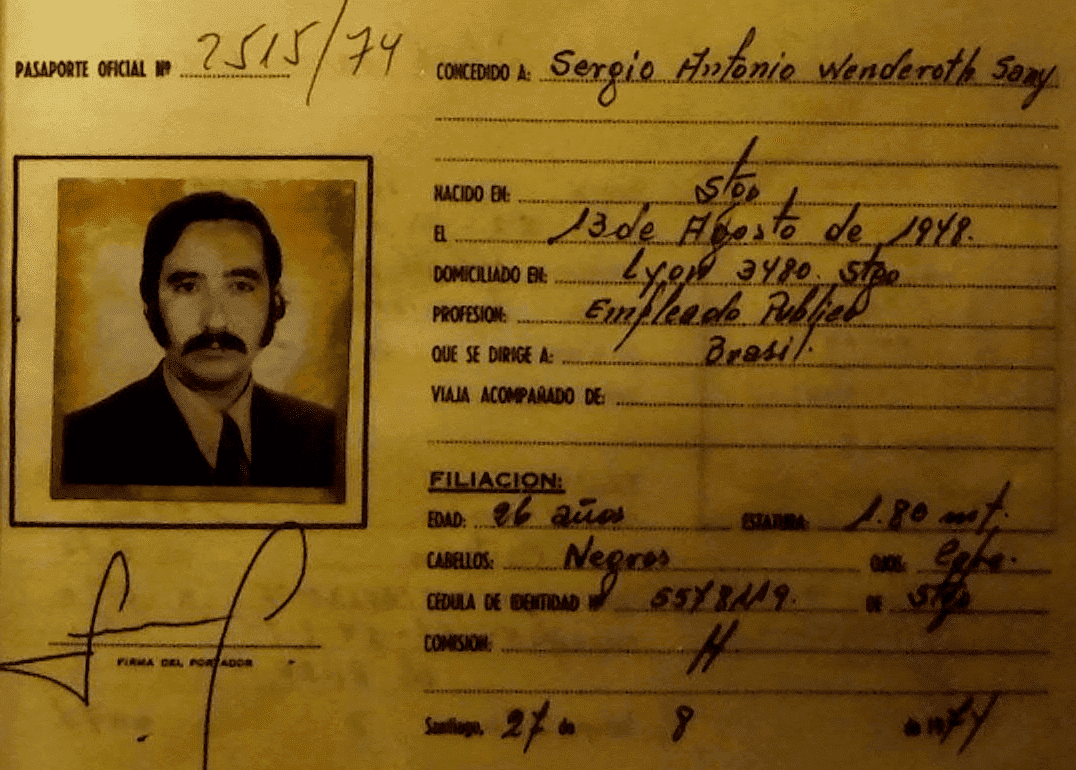 PASAPORTE OFICIAL Nº 2515/74
CONCEDIDO A: Sergio Antonio Wenderoth Sany
NACIDO EN: Stgo
EL 13 de Agosto de 1948.
DOMICILIADO EN: Lyon 3480. Stgo
PROFESION: Empleado Publico
QUE SE DIRIGE A: Brasil.
VIAJA ACOMPAÑADO DE:
FILIACION:
EDAD: 26 años ESTATURA: 1.80 mt.
CABELLOS: Negros OJOS:
CEDULA DE IDENTIDAD Nº DE Stgo
COMISION:
FIRMA DEL PORTADOR
Santiago, 27 de 8 de 1974